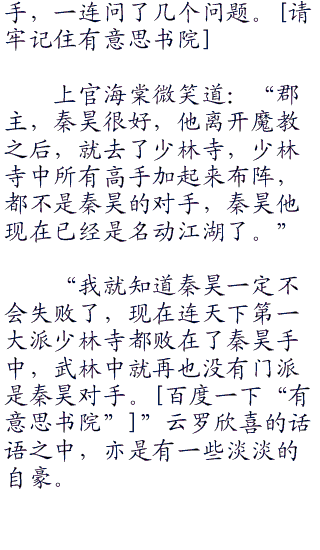 手，一连问了几个问题。[请
牢记住有意思书院]
上官海棠微笑道：“郡
主，秦昊很好，他离开魔教
之后，就去了少林寺，少林
寺中所有高手加起来布阵，
都不是秦昊的对手，秦昊他
现在已经是名动江湖了。”
“我就知道秦昊一定不
会失败了，现在连天下第一
大派少林寺都败在了秦昊手
中，武林中就再也没有门派
是秦昊对手。[百度一下“有
意思书院”]”云罗欣喜的话
语之中，亦是有一些淡淡的
自豪。